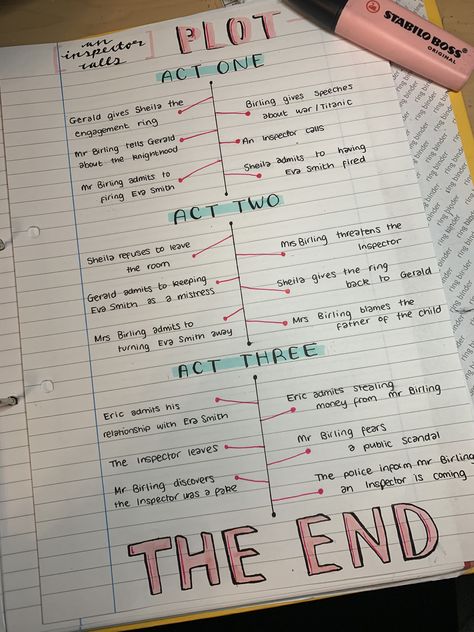 an inspector calls
PLOT
ACT ONE
Gerald gives Sheila the
engagement ring
Birling gives speeches
about war/Titanic
Mr Birling tells Gerald
about the knighthood
An Inspector calls
Mr Birling admits to
firing Eva Smith
Sheila admits to having
Eva Smith fired
ACT TWO
Sheila refuses to leave
the room
Ms Birling threatens the
Inspector
Gerald admits to keeping
Eva Smith as a mistress
Sheila gives the ring
back to Gerald
Mrs Birling admits to
turning Eva Smith away
Mrs Birling blames the
father of the child
ACT THREE
Eric admits his
relationship with Eva Smith
Eric admits stealing
money from Mr Birling
The Inspector leaves
Mr Birling fears
a public scandal
Mr Birling discovers
the Inspector was a fake
The police inform Mr Birling
an Inspector is coming
THE END
STABILO BOSS
ORIGINAL
ring binder